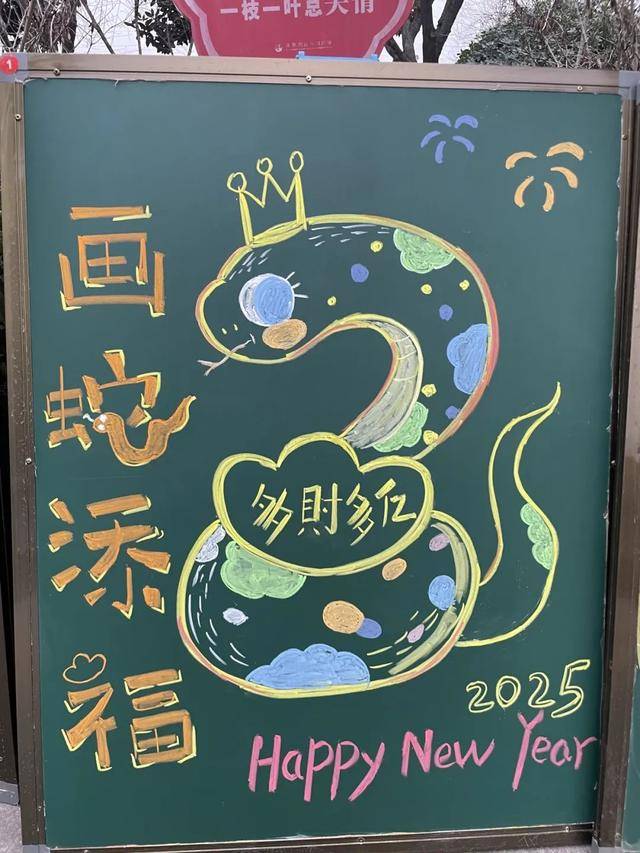 一枝一叶总关情
1
画蛇添福
多財多亿
2025
Happy New Year